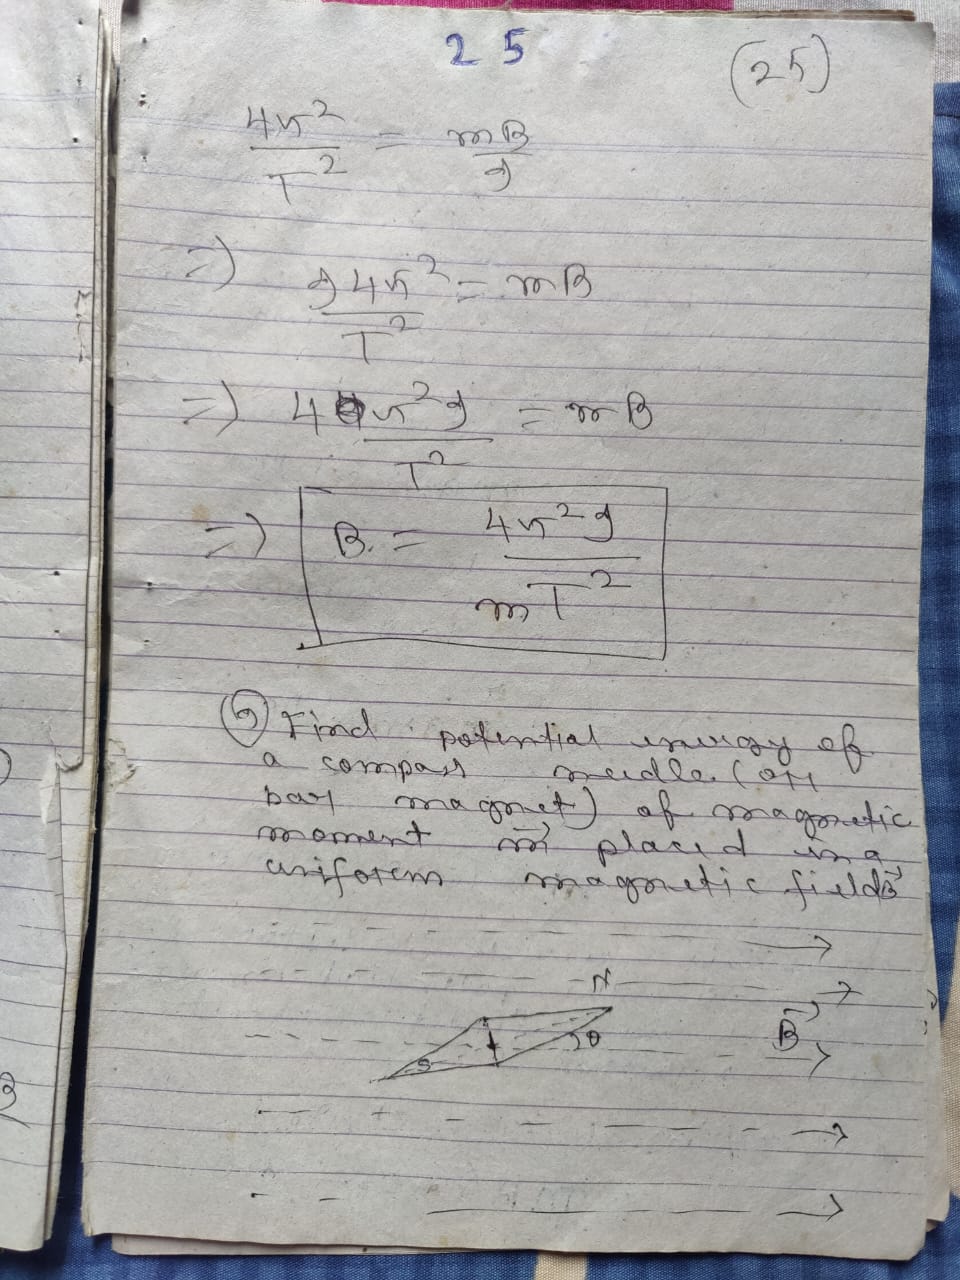 25
(25)
4π²/T² = mB/I
=) I4π²/T² = mB
=) 4π²I/T² = mB
=) B = 4π²I/mT²
Find potential energy of
a compass needle (or
bar magnet) of magnetic
moment m⃗ placed in a
uniform magnetic field B⃗
N
B⃗
S
θ